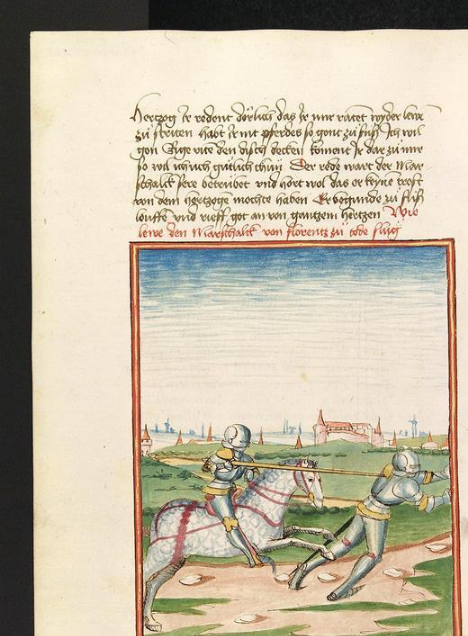 Herczog Ir redent dorlich das Ir mir ratet wyder lewe
zu striten habt Ir nit pferdes so gent zu fuß Ich wil
gen Byge vnd den disch decken koment Ir dar zu mir
so wil ich uch gutlich thun Der rede wart der Mar
schalck sere betrubet vnd hort wol das er keyne trost
von dem hertzogen mocht haben Er begunde zu fuß
louffe vnd rieff got an von gantzem hertzen Wie
lewe den Marschalck von florentz zu tode slug